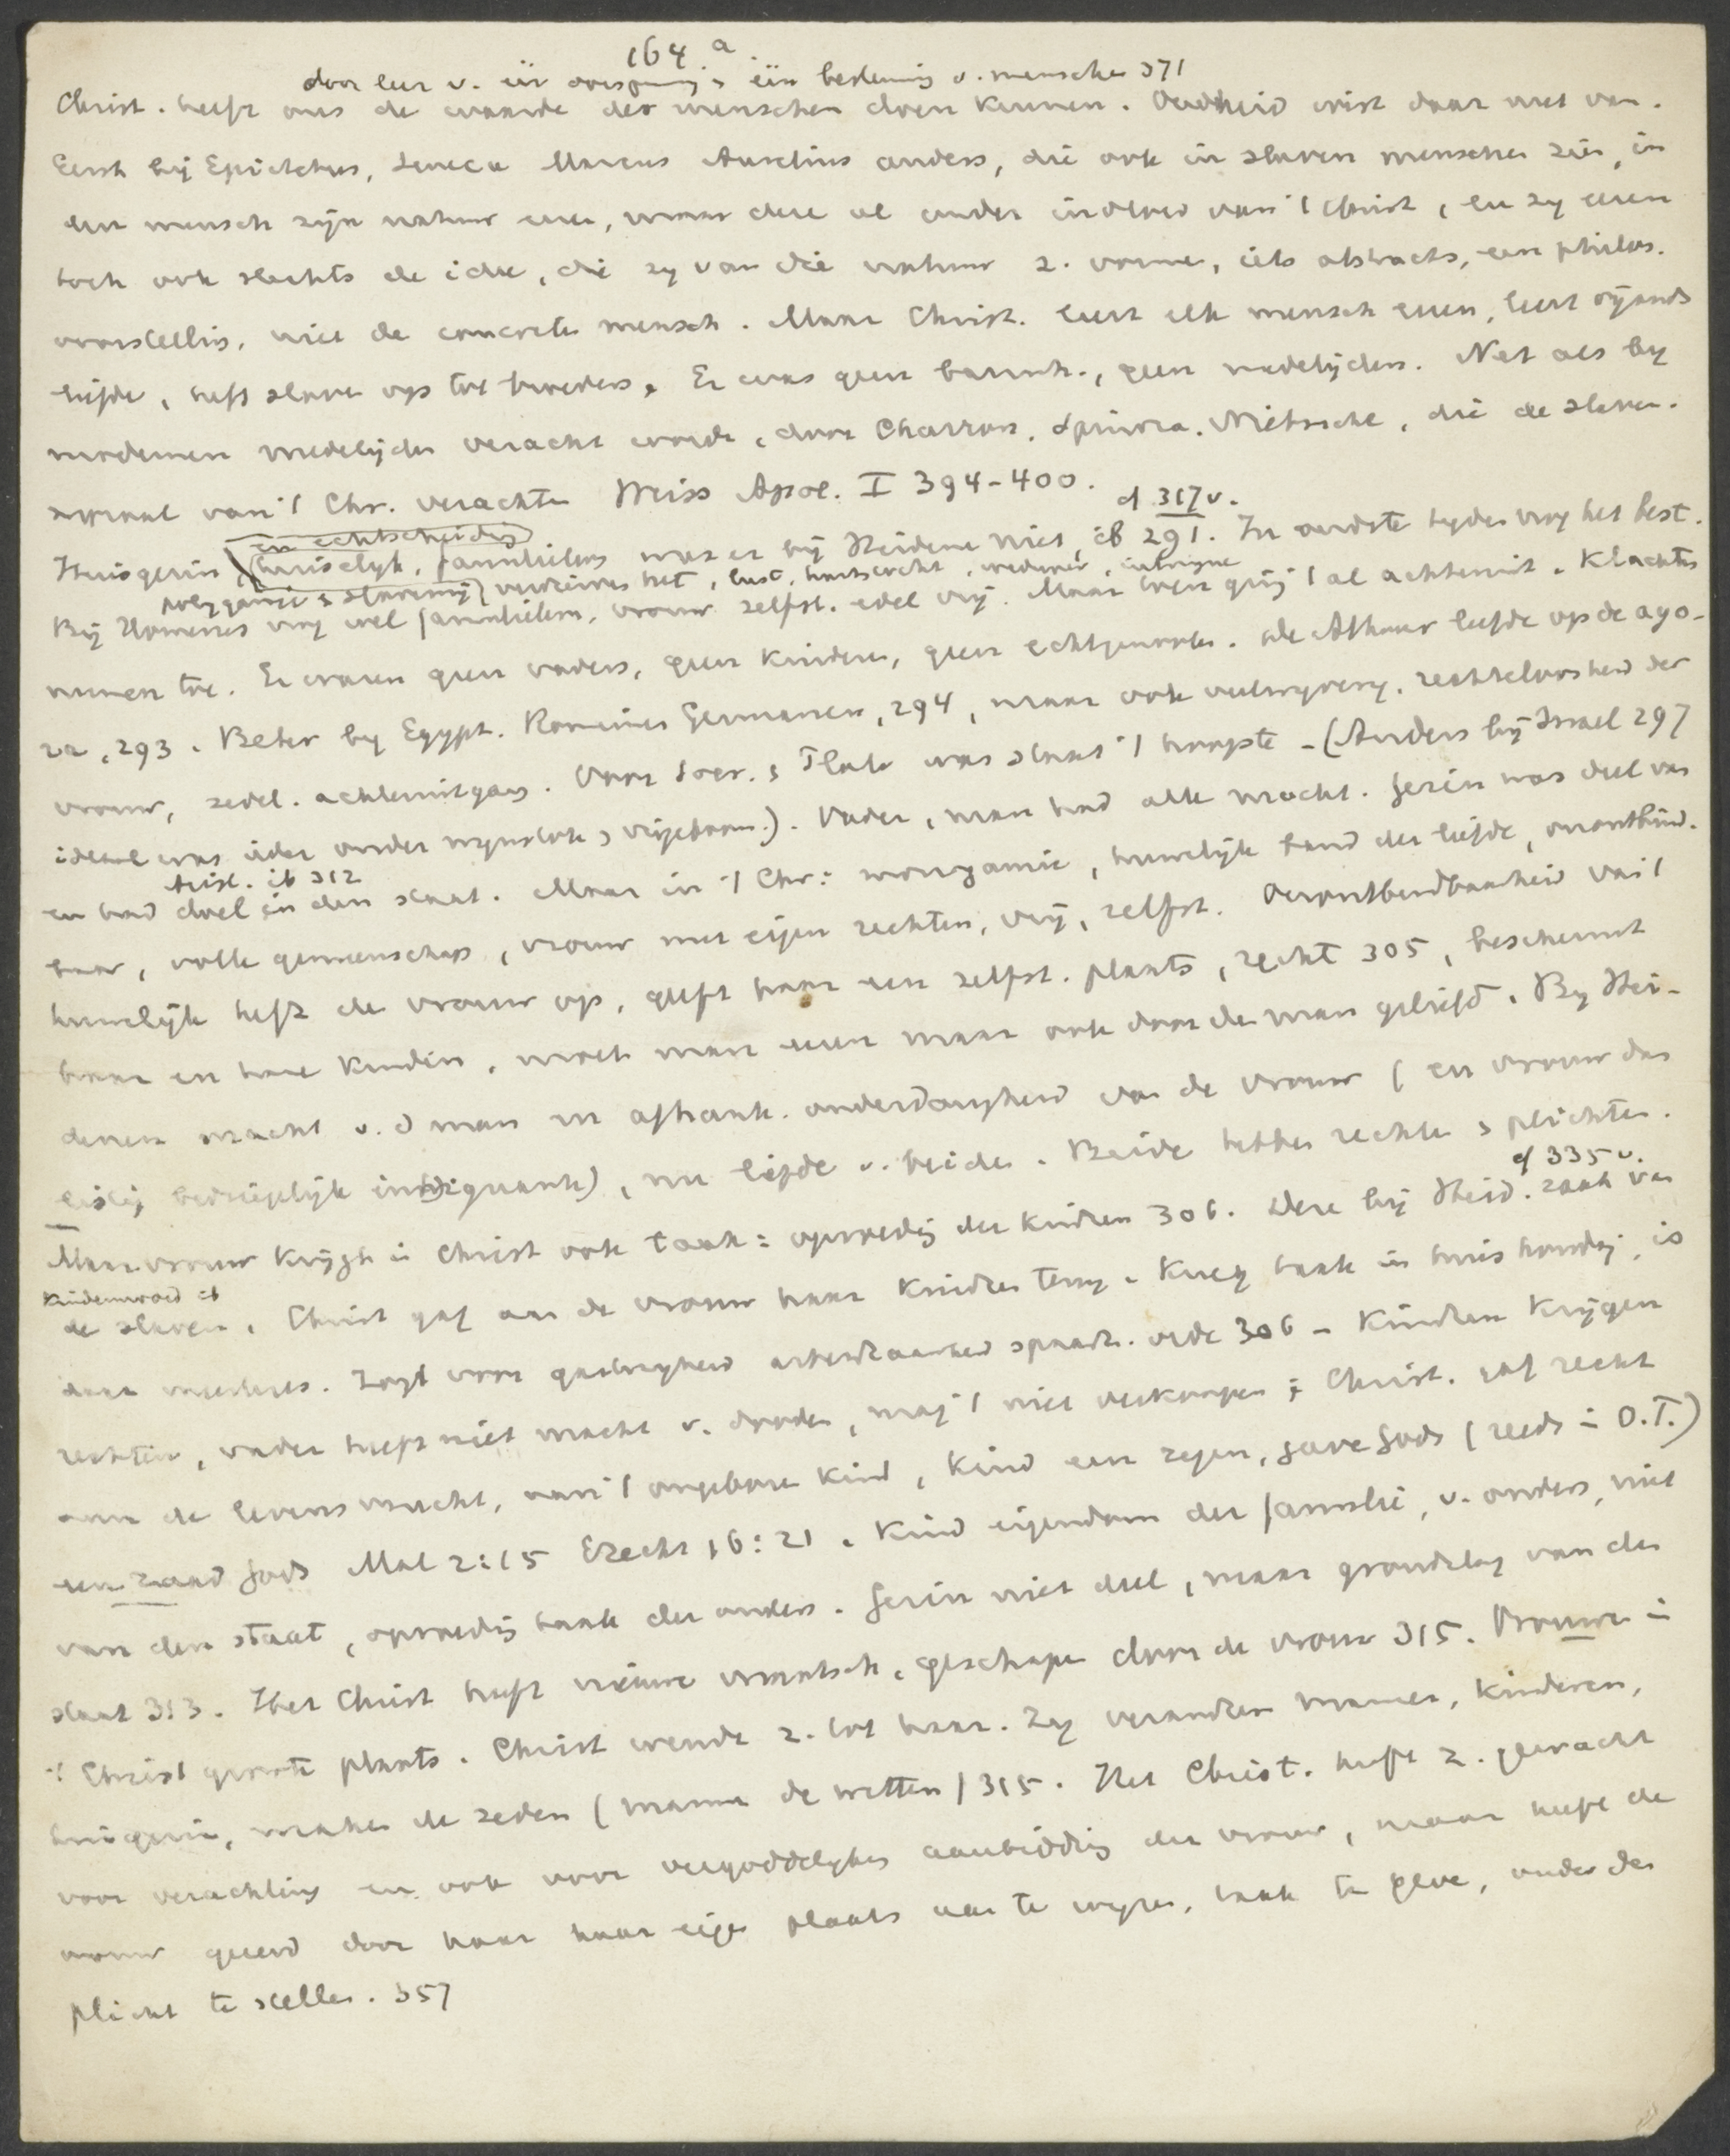 164.a
door leer v. één oorsprong & één bestemming v. menschen 371
Christ. heeft ons de waarde der menschen doen kennen. Oudheid wist daar niet van.
Eerst bij Epictetus, Seneca Marcus Aurelius anders, die ook in slaven menschen zien, in
den mensch zijn natuur eren, maar deze al onder invloed van 't Christ, en zy eren
toch ook slechts de idee, die zy van die natuur z. vormen, iets abstracts, een philos.
voorstelling, niet de concrete mensch. Maar Christ. leert elk mensch eren, leert vijands
liefde, heft slaven op tot broeders. Er was geen barmh., geen medelijden. Net als by
modernen medelijden veracht wordt, door Charron, Spinoza, Nietzsche, die de slaven-
moraal van 't Chr. verachten Weiss Apol. I 394-400.
cf 317 v.
en echtscheiding
Huisgezin, huiselijk, familieleven was er bij Heidenen niet, ib 291. In oudste tyden nog het best.
polygamie & slavernij verdierven het, lust, heerszucht, wederw, intrigue
Bij Homerus nog wel familieleven, vrouw zelfst. edel vrij. Maar toen ging 't al achteruit. Klachten
namen toe. Er waren geen vaders, geen kinderen, geen echtgenooten. De Athener leefde op de ago-
ra, 293. Beter by Egypt. Romeinen Germanen, 294, maar ook veelwyvery, rechteloosheid der
vrouw, zedel. achteruitgang. Voor Socr. & Plato was staat 't hoogste - (Anders bij Israel 297
ideaal was ieder onder wynstok & vijgeboom.). Vader, man had alle macht. Gezin was deel van
Arist. ib 312
en had doel in den staat. Maar in 't Chr: monogamie, huwelijk band der liefde, onontbind-
baar, volle gemeenschap, vrouw met eigen rechten, vrij, zelfst. Onontbindbaarheid van 't
huwelijk heft de vrouw op, geeft haar een zelfst. plaats, recht 305, beschermt
haar en hare kinderen, moet man eren maar ook door de man geliefd. By Hei-
denen macht v. d man en afhank. onderdanigheid van de vrouw (en vrouw dan
listig bedriegelijk intrigante), nu liefde v. beiden. Beide hebben rechten & plichten.
cf 335 v.
Maar vrouw krijgt in Christ ook taak: opvoeding der kinderen 306. Deze bij Heid. zaak van
Kindermoord ib
de slaven. Christ gaf aan de vrouw haar kinderen terug. Kreeg taak in huishouding, is
daar meesteres. Zorgt voor gastvryheid arbeidzaamheid spaarz. orde 306 - Kinderen krijgen
rechten, vader heeft niet macht v. dooden, mag 't niet verkoopen; Christ. gaf recht
aan de levensvrucht, aan 't ongeboren kind, kind een zegen, gave Gods (reeds in O.T.)
een zaad Gods Mal 2:15 Ezech 16:21. Kind eigendom der familie, v. ouders, niet
van den staat, opvoeding taak der ouders. Gezin niet deel, maar grondslag van den
staat 313. Het Christ heeft nieuwe maatsch. geschapen door de vrouw 315. Vrouw in
't Christ groote plaats. Christ wendt z. tot haar. Zy verandren mannen, kinderen,
huisgezin, maken de zeden (mannen de wetten) 315. Het Christ. heeft z. gewacht
voor verachting en ook voor vergoddelyken aanbidding der vrouw, maar heeft de
vrouw geëerd door haar haar eigen plaats aan te wyzen, taak te geven, onder den
plicht te stellen. 357